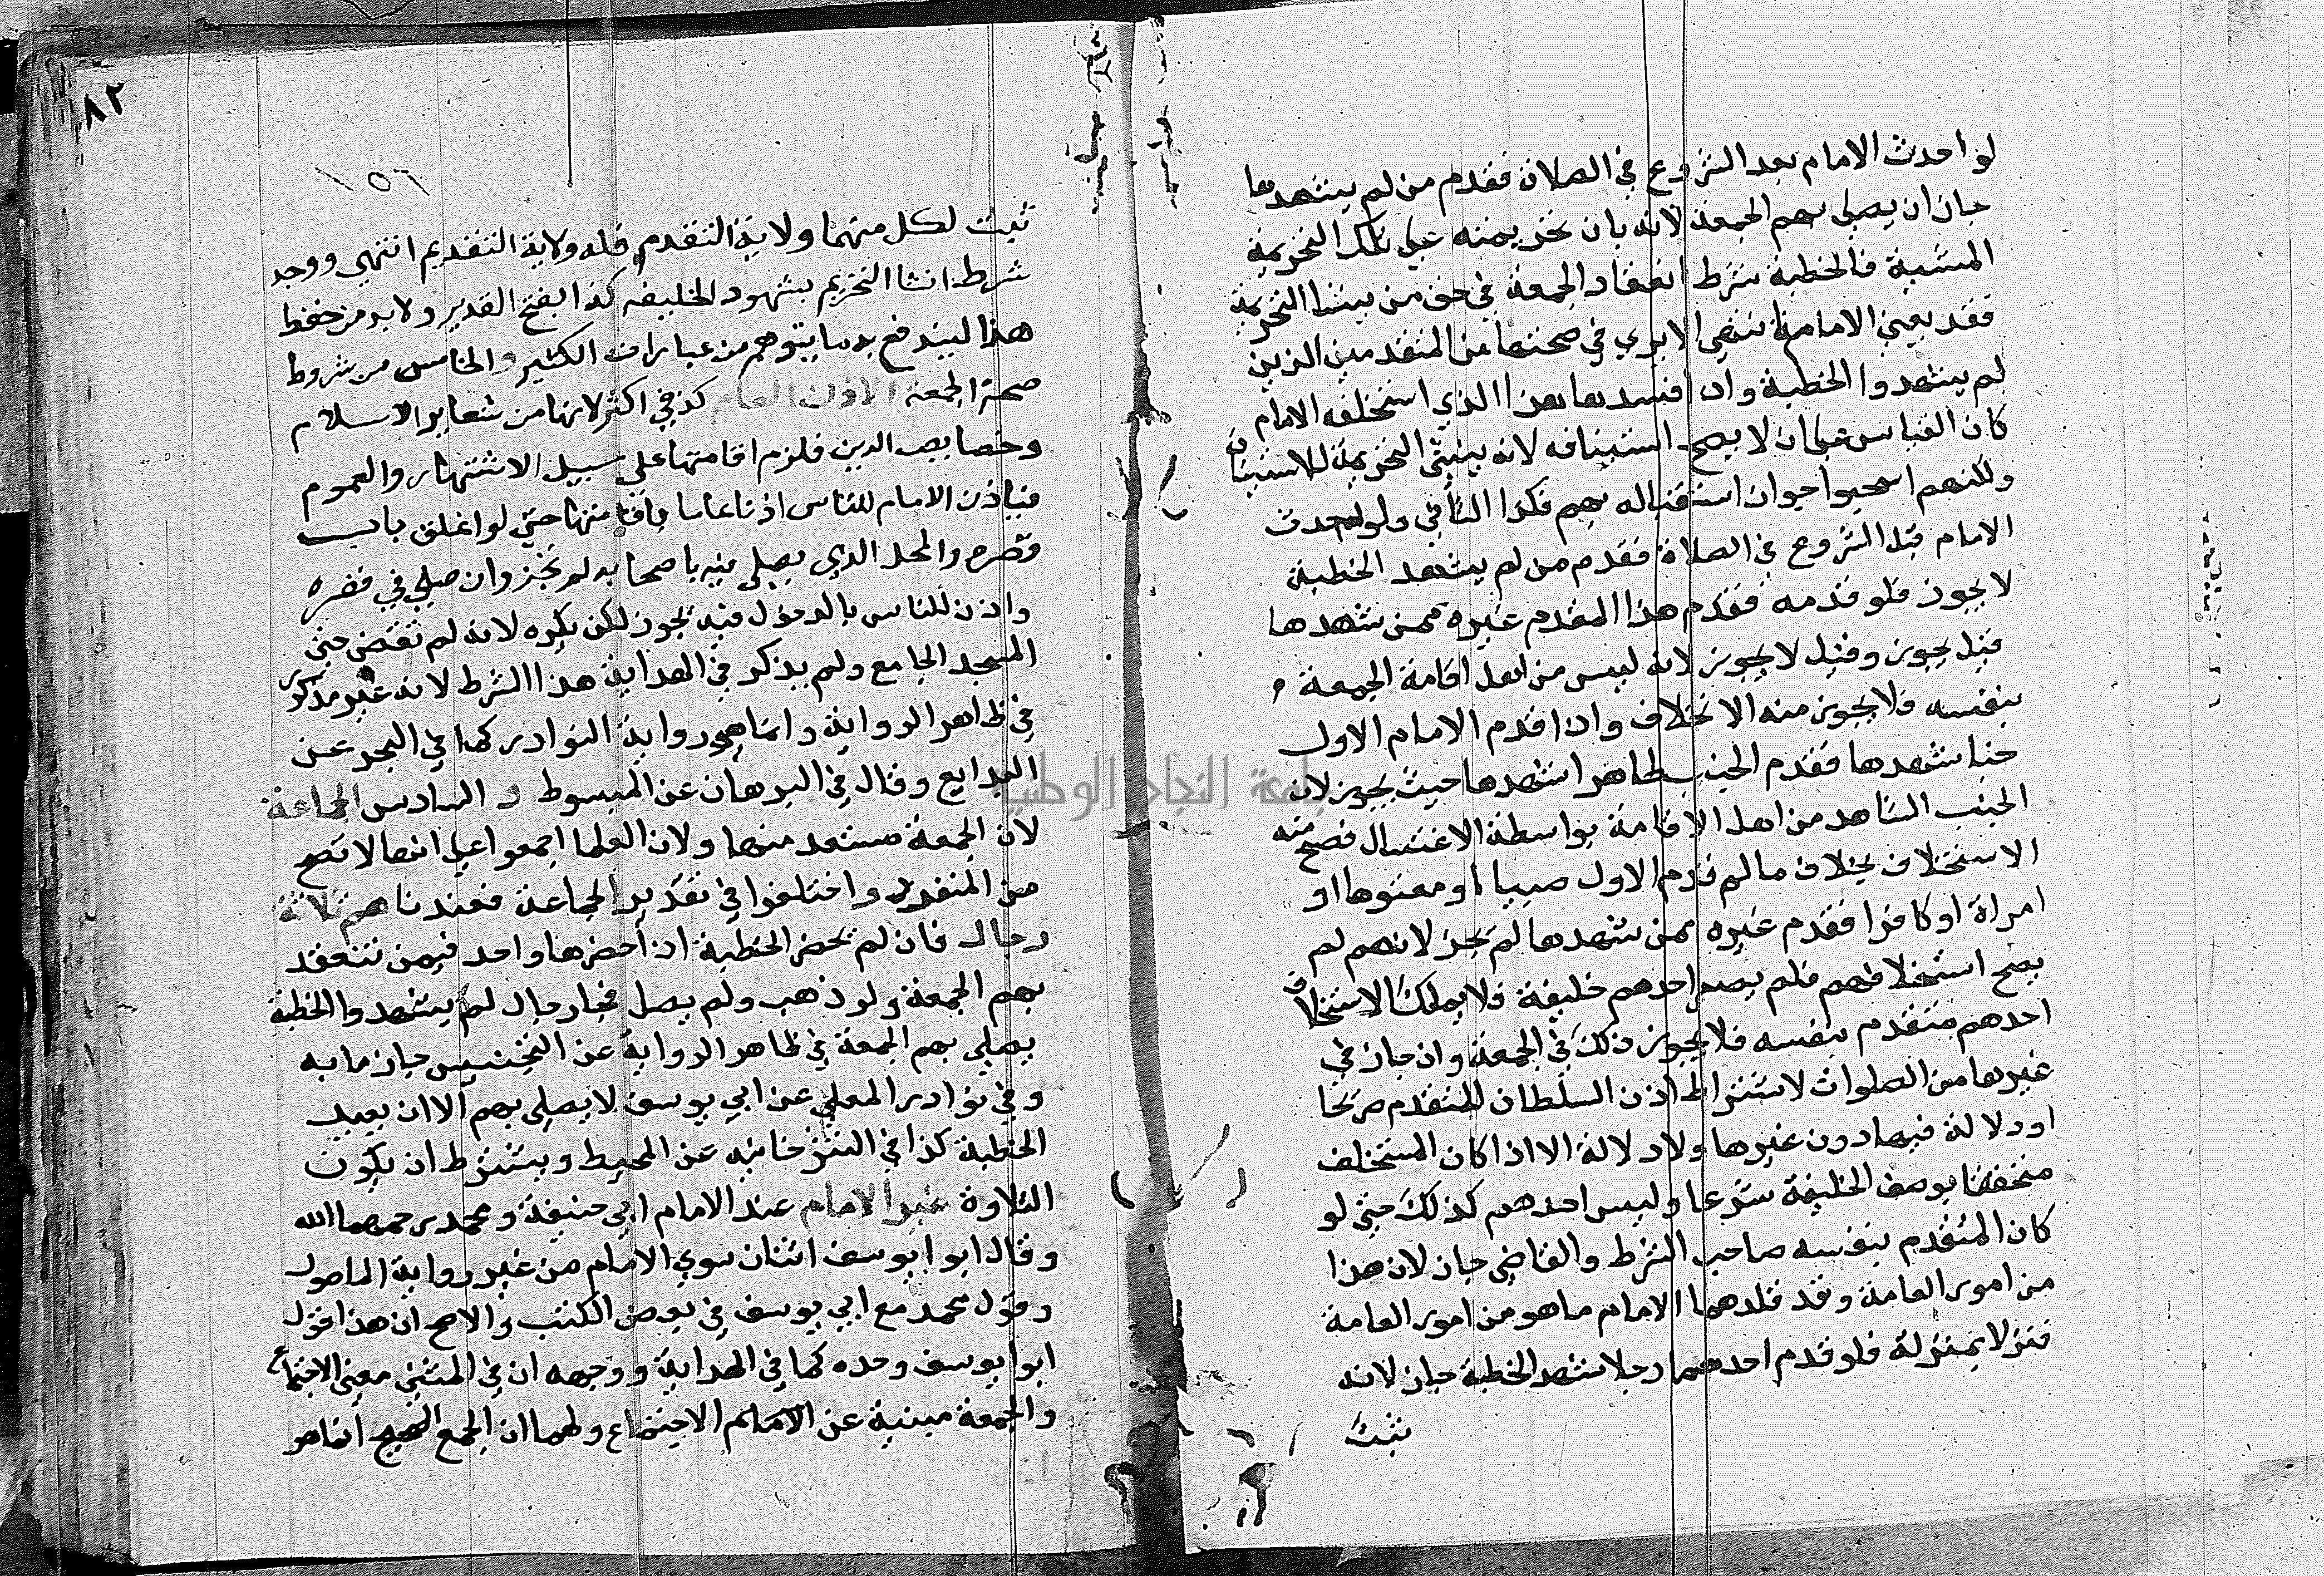 لو احدث الامام بعد الشروع في الصلاة فقدم من لم يشهدها
جاز ان يصلي بهم الجمعة لانه بان تحريمته على تلك التحريمة
المنشية فالخطبة شرط انعقاد الجمعة في حق من ينشا التحريمة
فقد يعني الامام الا يري في صحتها من المقتدين الذين
لم يشهدوا الخطبة وان افسد بها هذا الذي استخلفه الامام
كان القياس على ان لا يصح استينافه لانه ينشئ التحريمة للاستيناف
ولكنهم جواز استقباله بهم فكذا الثاني ولو احدث
الامام قبل الشروع في الصلاة فقدم من لم يشهد الخطبة
لا يجوز فلو قدمه فقدم هذا المقدم غيره ممن شهدها
قيل يجوز وقيل لا يجوز لانه ليس من اهل اقامة الجمعة
بنفسه فلا يجوز منه الاستخلاف واذا قدم الامام الاول
جنبا شهدها فقدم الجنب طاهرا شهدها حيث يجوز لان
الجنب الشاهد من اهل الاقامة بواسطة الاغتسال فصح منه
الاستخلاف بخلاف ما لو قدم الاول صبيا او معتوها او
امراة او كافرا فقدم غيره ممن شهدها لم يجز لانهم لم
يصح استخلافهم فلم يصر احدهم خليفة فلا يملك الاستخلاف
احدهم متقدم بنفسه فلا يجوز ذلك في الجمعة وان جاز في
غيرها من الصلوات لاشتراط اذن السلطان للمتقدم صريحا
او دلالة فيها دون غيرها ولا دلالة الا اذا كان المستخلف
متحققا بوصف الخليفة شرعا وليس احدهم كذلك حتى لو
كان المتقدم بنفسه صاحب الشرط والقاضي جاز لان هذا
من امور العامة وقد قلدهما الامام ما هو من امور العامة
فنزلا بمنزلة فلو قدم احدهما رجلا شهد الخطبة جاز لانه
ثبت
٨٢
١٥٦
ثبت لكل منهما ولاية التقدم فله ولاية التقديم انتهي ووجد
شرط انشا التحريم بشهود الخليفه كذا بفتح القدير ولا بد من حفظ
هذا ليندفع به ما يتوهم من عبارات الكثير والخامس من شروط
صحة الجمعة الاذن العام كذ في اكثر لانها من شعاير الاسلام
وخصايص الدين فلزم اقامتها على سبيل الاشتهار والعموم
فياذن الامام للناس اذنا عاما باقامتها حتى لو اغلق باب
قصره والمحل الذي يصلي فيه باصحابه لم تجز وان صلى في قصره
واذن للناس بالدخول فيه تجوز لكن يكره لانه لم تقض حق
المسجد الجامع ولم يذكر في الهداية هذا الشرط لانه غير مذكور
في ظاهر الرواية وانما هو رواية النوادر كما في البحر عن
البدايع وقال في البرهان عن المبسوط و السادس الجماعة
لان الجمعة مشتقة منها ولان العلما اجمعوا على انها لا تصح
من المنفرد واختلفوا في تقدير الجماعة فعندنا هم ثلاثة
رجال فان لم تحضر الخطبة اذ احضرها واحد فيمن تنعقد
بهم الجمعة ولو ذهب ولم يصل فجا رجال لم يشهدوا الخطبة
يصلي بهم الجمعة في ظاهر الرواية عن التجنيس جاز ما به
وفي نوادر المعلى عن ابي يوسف لا يصلي بهم الا ان يعيد
الخطبة كذا في التترخانيه عن المحيط ويشترط ان يكون
الثلاثة غير الامام عند الامام ابي حنيفة ومحمد رحمهما الله
وقال ابوا يوسف اثنان سوي الامام من غير رواية الماصول
وقول محمد مع ابي يوسف في بعض الكتب والاصح ان هذا قول
ابوا يوسف وحده كما في الهداية ووجهه ان في المثنى معنى الاجتماع
والجمعة مبنية عن الاجتماع ولهما ان الجمع الصحيح انما هو
جامعة النجاح الوطنية